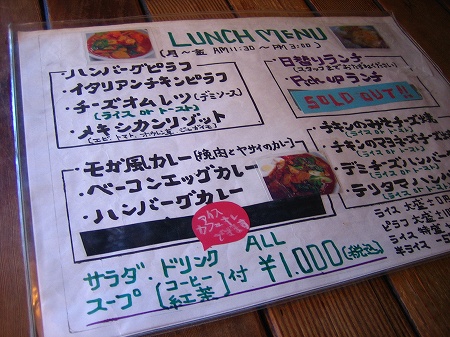 LUNCH MENU
(月~金 AM11:30 ~ PM 3:00)
・ハンバーグピラフ
・イタリアンチキンピラフ
・チーズオムレツ(デミソース)
(ライス or トースト)
・メキシカンリゾット
・モガ風カレー(焼肉とヤサイのカレー)
・ベーコンエッグカレー
・ハンバーグカレー
アイス
サラダ・ドリンク
スープ
コーヒー
紅茶
付
ALL
¥1,000(税込)
・日替りランチ
・Pick upランチ
SOLD OUT!!
(ライス or トースト)
・チキンのマヨネ
(ライス or トースト)
・デミチーズハンバー
(ライス or トースト)
・テリタマハンバー
(ライス or トースト)
ライス 大盛
ピラフ 大盛
ライス 特盛
半ライス